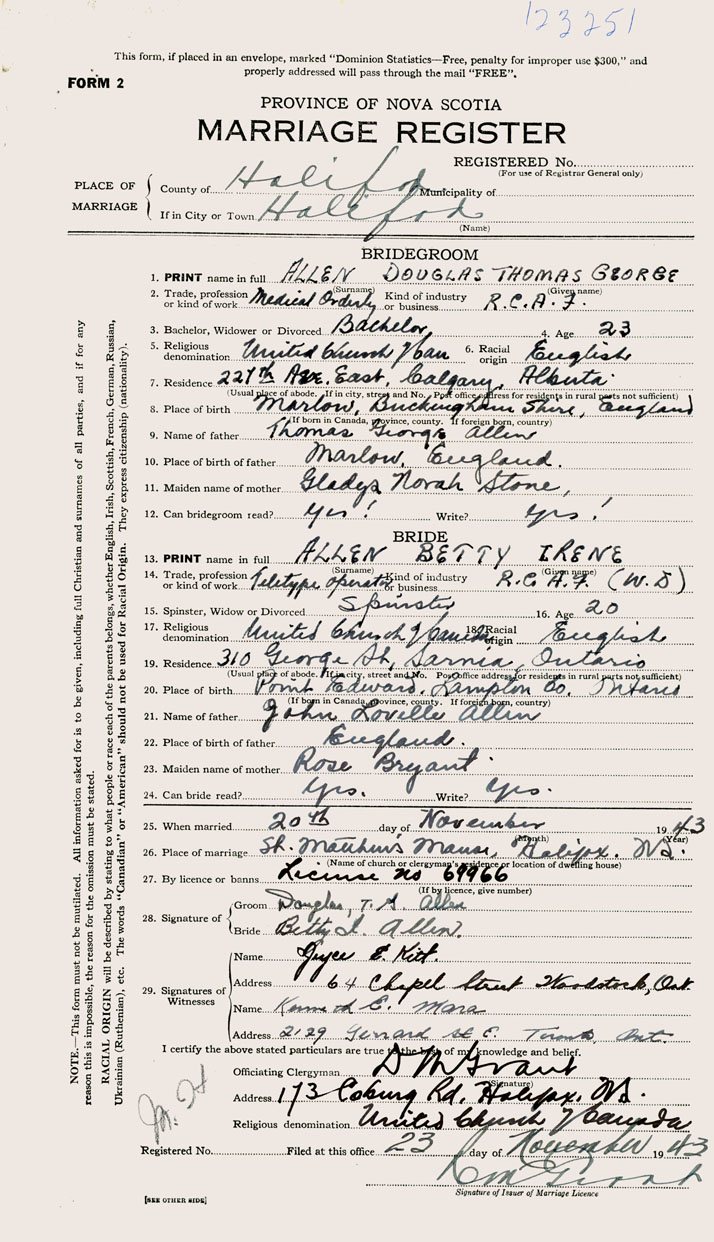 123251
This form, if placed in an envelope, marked "Dominion Statistics—Free, penalty for improper use $300," and
properly addressed will pass through the mail "FREE".
FORM 2
PROVINCE OF NOVA SCOTIA
MARRIAGE REGISTER
REGISTERED No.
(For use of Registrar General only)
PLACE OF MARRIAGE
County of Halifax Municipality of
If in City or Town Halifax
(Name)
BRIDEGROOM
1. PRINT name in full ALLEN DOUGLAS THOMAS GEORGE
(Surname) (Given name)
2. Trade, profession or kind of work Medical Orderly Kind of industry or business R.C.A.F.
3. Bachelor, Widower or Divorced Bachelor, 4. Age 23
5. Religious denomination United Church / Can 6. Racial origin English
7. Residence 227th Ave. East, Calgary, Alberta
(Usual place of abode. If in city, street and No. Post office address for residents in rural parts not sufficient)
8. Place of birth Marlow, Buckingham Shire, England
(If born in Canada, province, county. If foreign born, country)
9. Name of father Thomas George Allen
10. Place of birth of father Marlow, England.
11. Maiden name of mother Gladys Norah Stone,
12. Can bridegroom read? Yes! Write? Yes!
BRIDE
13. PRINT name in full ALLEN BETTY IRENE
(Surname) (Given name)
14. Trade, profession or kind of work Teletype operator Kind of industry or business R.C.A.F. (W.D)
15. Spinster, Widow or Divorced Spinster 16. Age 20
17. Religious denomination United Church / Canada 18. Racial origin English
19. Residence 310 George St, Sarnia, Ontario
(Usual place of abode. If in city, street and No. Post office address for residents in rural parts not sufficient)
20. Place of birth Point Edward, Lampton Co. Ontario
(If born in Canada, province, county. If foreign born, country)
21. Name of father John Loville Allen
22. Place of birth of father England.
23. Maiden name of mother Rose Bryant
24. Can bride read? Yes. Write? Yes.
25. When married 20th day of November 1943
(Month) (Year)
26. Place of marriage St. Matthew's Manse, Halifax, N.S.
(Name of church or clergyman's residence or location of dwelling house)
27. By licence or banns License no 69966
(If by licence, give number)
28. Signature of
Groom Douglas, T. G. Allen
Bride Betty I. Allen.
29. Signatures of Witnesses
Name Joyce E. Kitt.
Address 64 Chapel Street Woodstock, Ont.
Name E. Mara
Address 2129 Gerrard St E. Toronto, Ont.
I certify the above stated particulars are true to the best of my knowledge and belief.
Officiating Clergyman D M Grant
(Signature)
Address 173 Coburg Rd, Halifax, N.S.
Religious denomination United Church / Canada
Registered No. Filed at this office 23 day of November 1943
Signature of Issuer of Marriage Licence
[SEE OTHER SIDE]
NOTE.—This form must not be mutilated. All information asked for is to be given, including full Christian and surnames of all parties, and if for any
reason this is impossible, the reason for the omission must be stated.
RACIAL ORIGIN will be described by stating to what people or race each of the parents belongs, whether English, Irish, Scottish, French, German, Russian,
Ukrainian (Ruthenian), etc. The words "Canadian" or "American" should not be used for Racial Origin. They express citizenship (nationality).